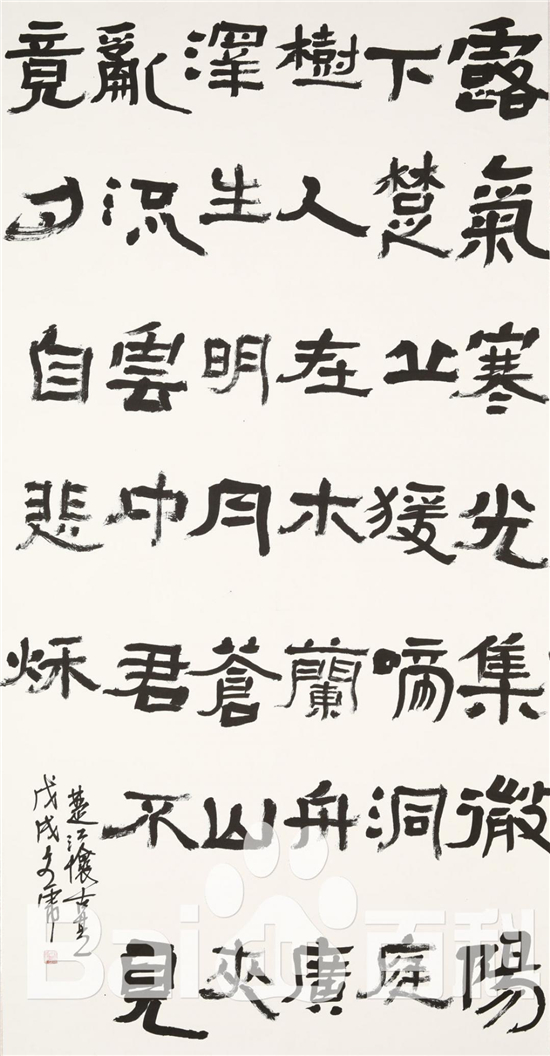 露氣寒光集微陽
下楚丘猨啼洞庭
樹人在木蘭舟廣
澤生明月蒼山夾
亂流雲中君不見
竟夕自悲秌
楚江懷古其一
戊戌文
Bai 百科